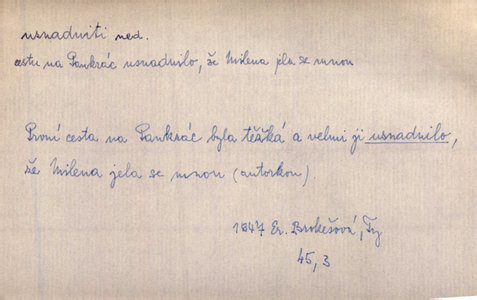 usnadniti ned.
cestu na Pankrác usnadnilo, že Milena jela se mnou
První cesta na Pankrác byla těžká a velmi ji usnadnilo,
že Milena jela se mnou (autorkou).
1947 Er. Brokešová, Ty
45,3